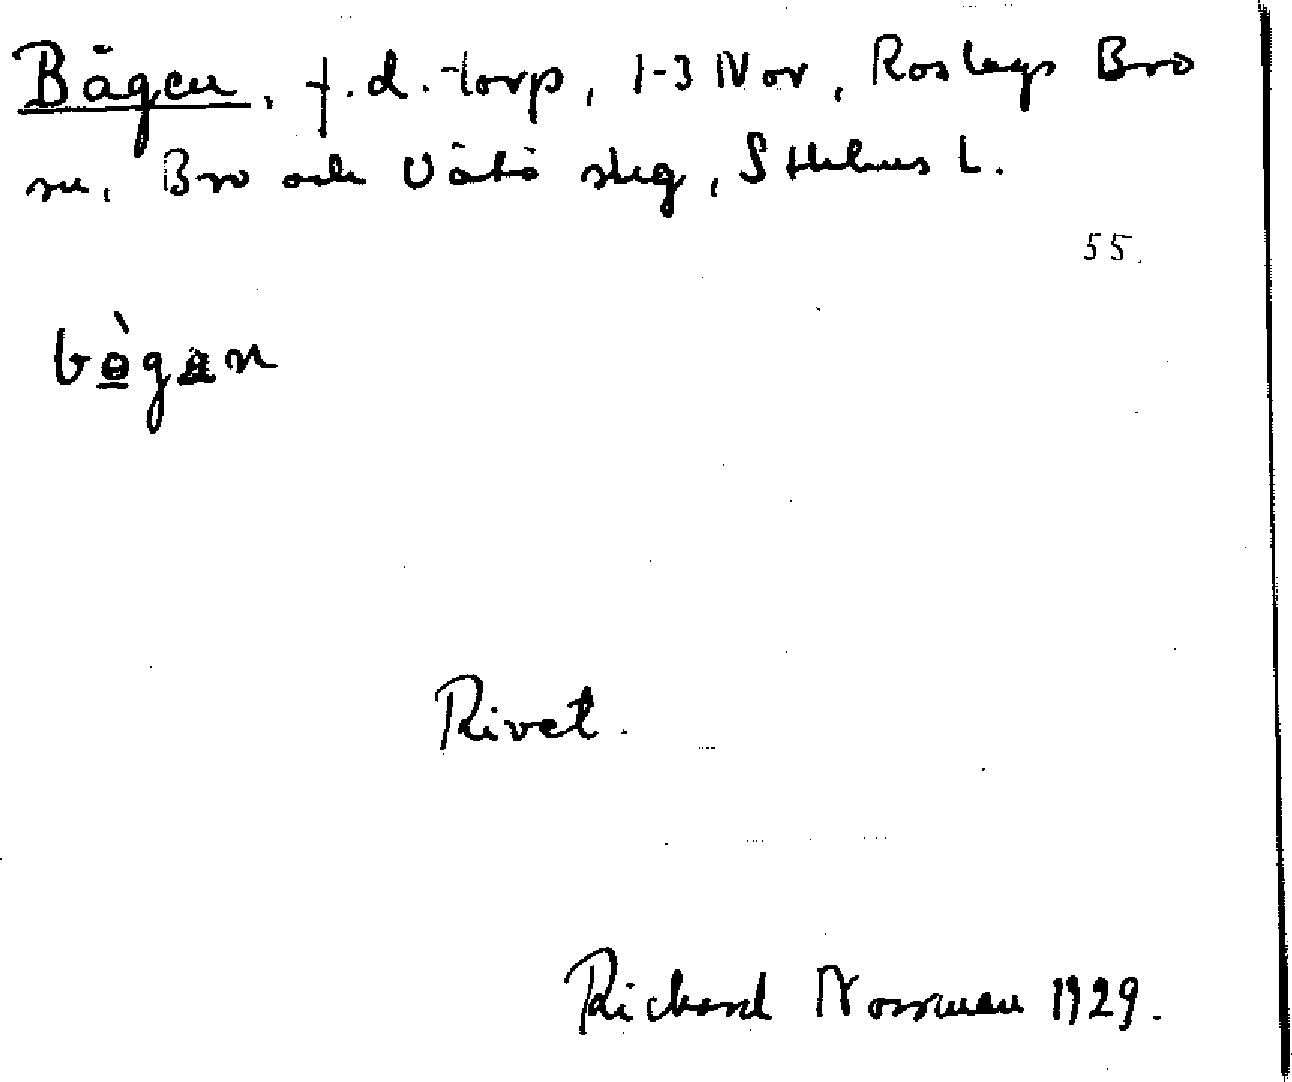 Bågen, f.d. torp, 1-3 Nor, Roslags Bro
sn, Bro och Vätö skg, Sthlms L.
55.
bògan
Rivet.
Richard Norrman 1929.